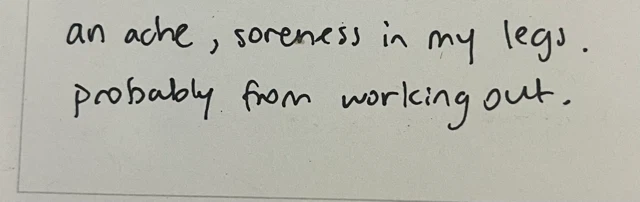 an ache, soreness in my legs.
probably from working out.